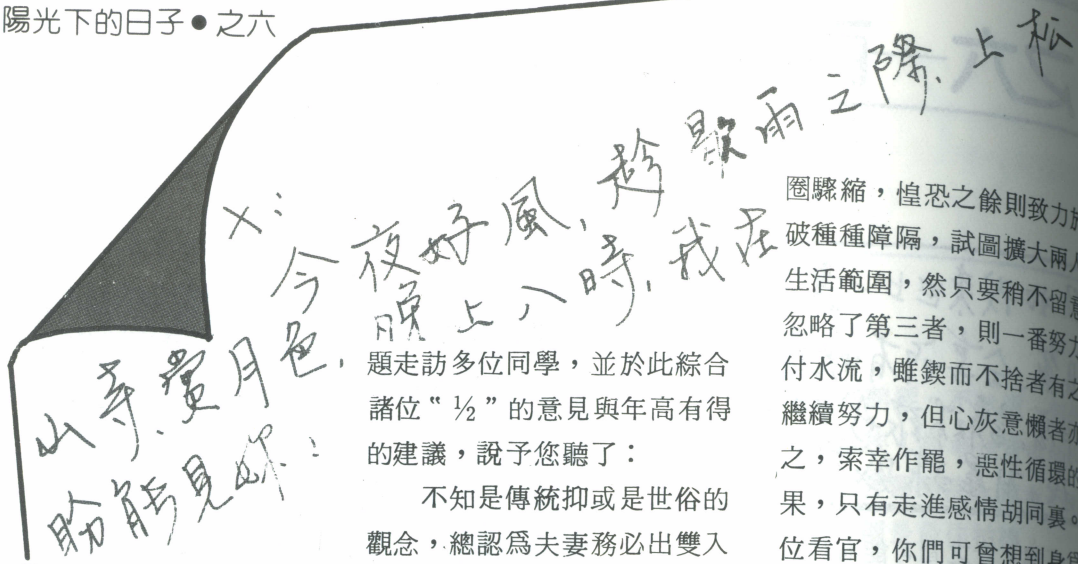 陽光下的日子●之六
X:
今夜好風,趁歇雨之際,上松
山寺、賞月色,晚上八時,我在
盼能見妳!
題走訪多位同學,並於此綜合
諸位“½”的意見與年高有得
的建議,說予您聽了:
不知是傳統抑或是世俗的
觀念,總認爲夫妻務必出雙入
圈驟縮,惶恐之餘則致力於
破種種障隔,試圖擴大兩人
生活範圍,然只要稍不留意
忽略了第三者,則一番努力
付水流,雖鍥而不捨者有之
繼續努力,但心灰意懶者亦
之,索幸作罷,惡性循環的
果,只有走進感情胡同裏。
位看官,你們可曾想到身